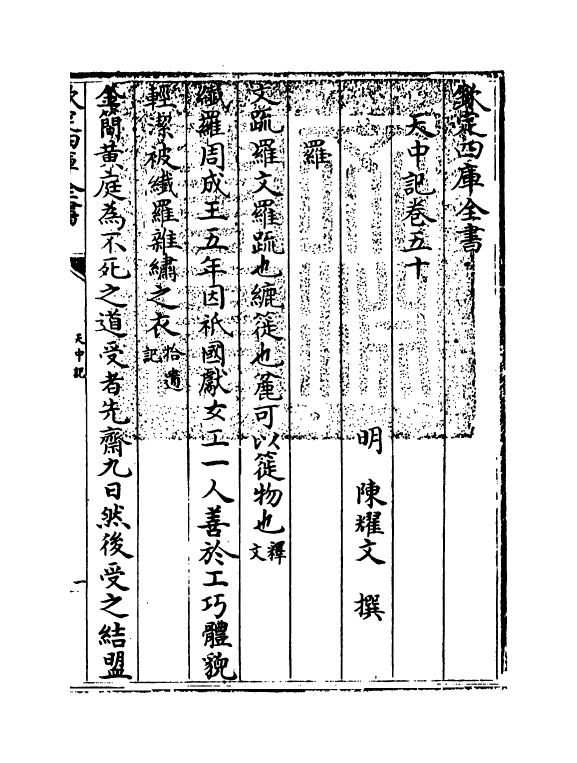 欽定四庫全書
天中記卷五十
明 陳耀文 撰
羅
文疏羅文羅疏也纚簁也麄可以簁物也釋文
纖羅周成王五年因祇國獻女工一人善於工巧體貌
輕潔被纖羅雜繡之衣拾遺記
金簡黄庭為不死之道受者先齋九日然後受之結盟
欽定四庫全書
天中記
一